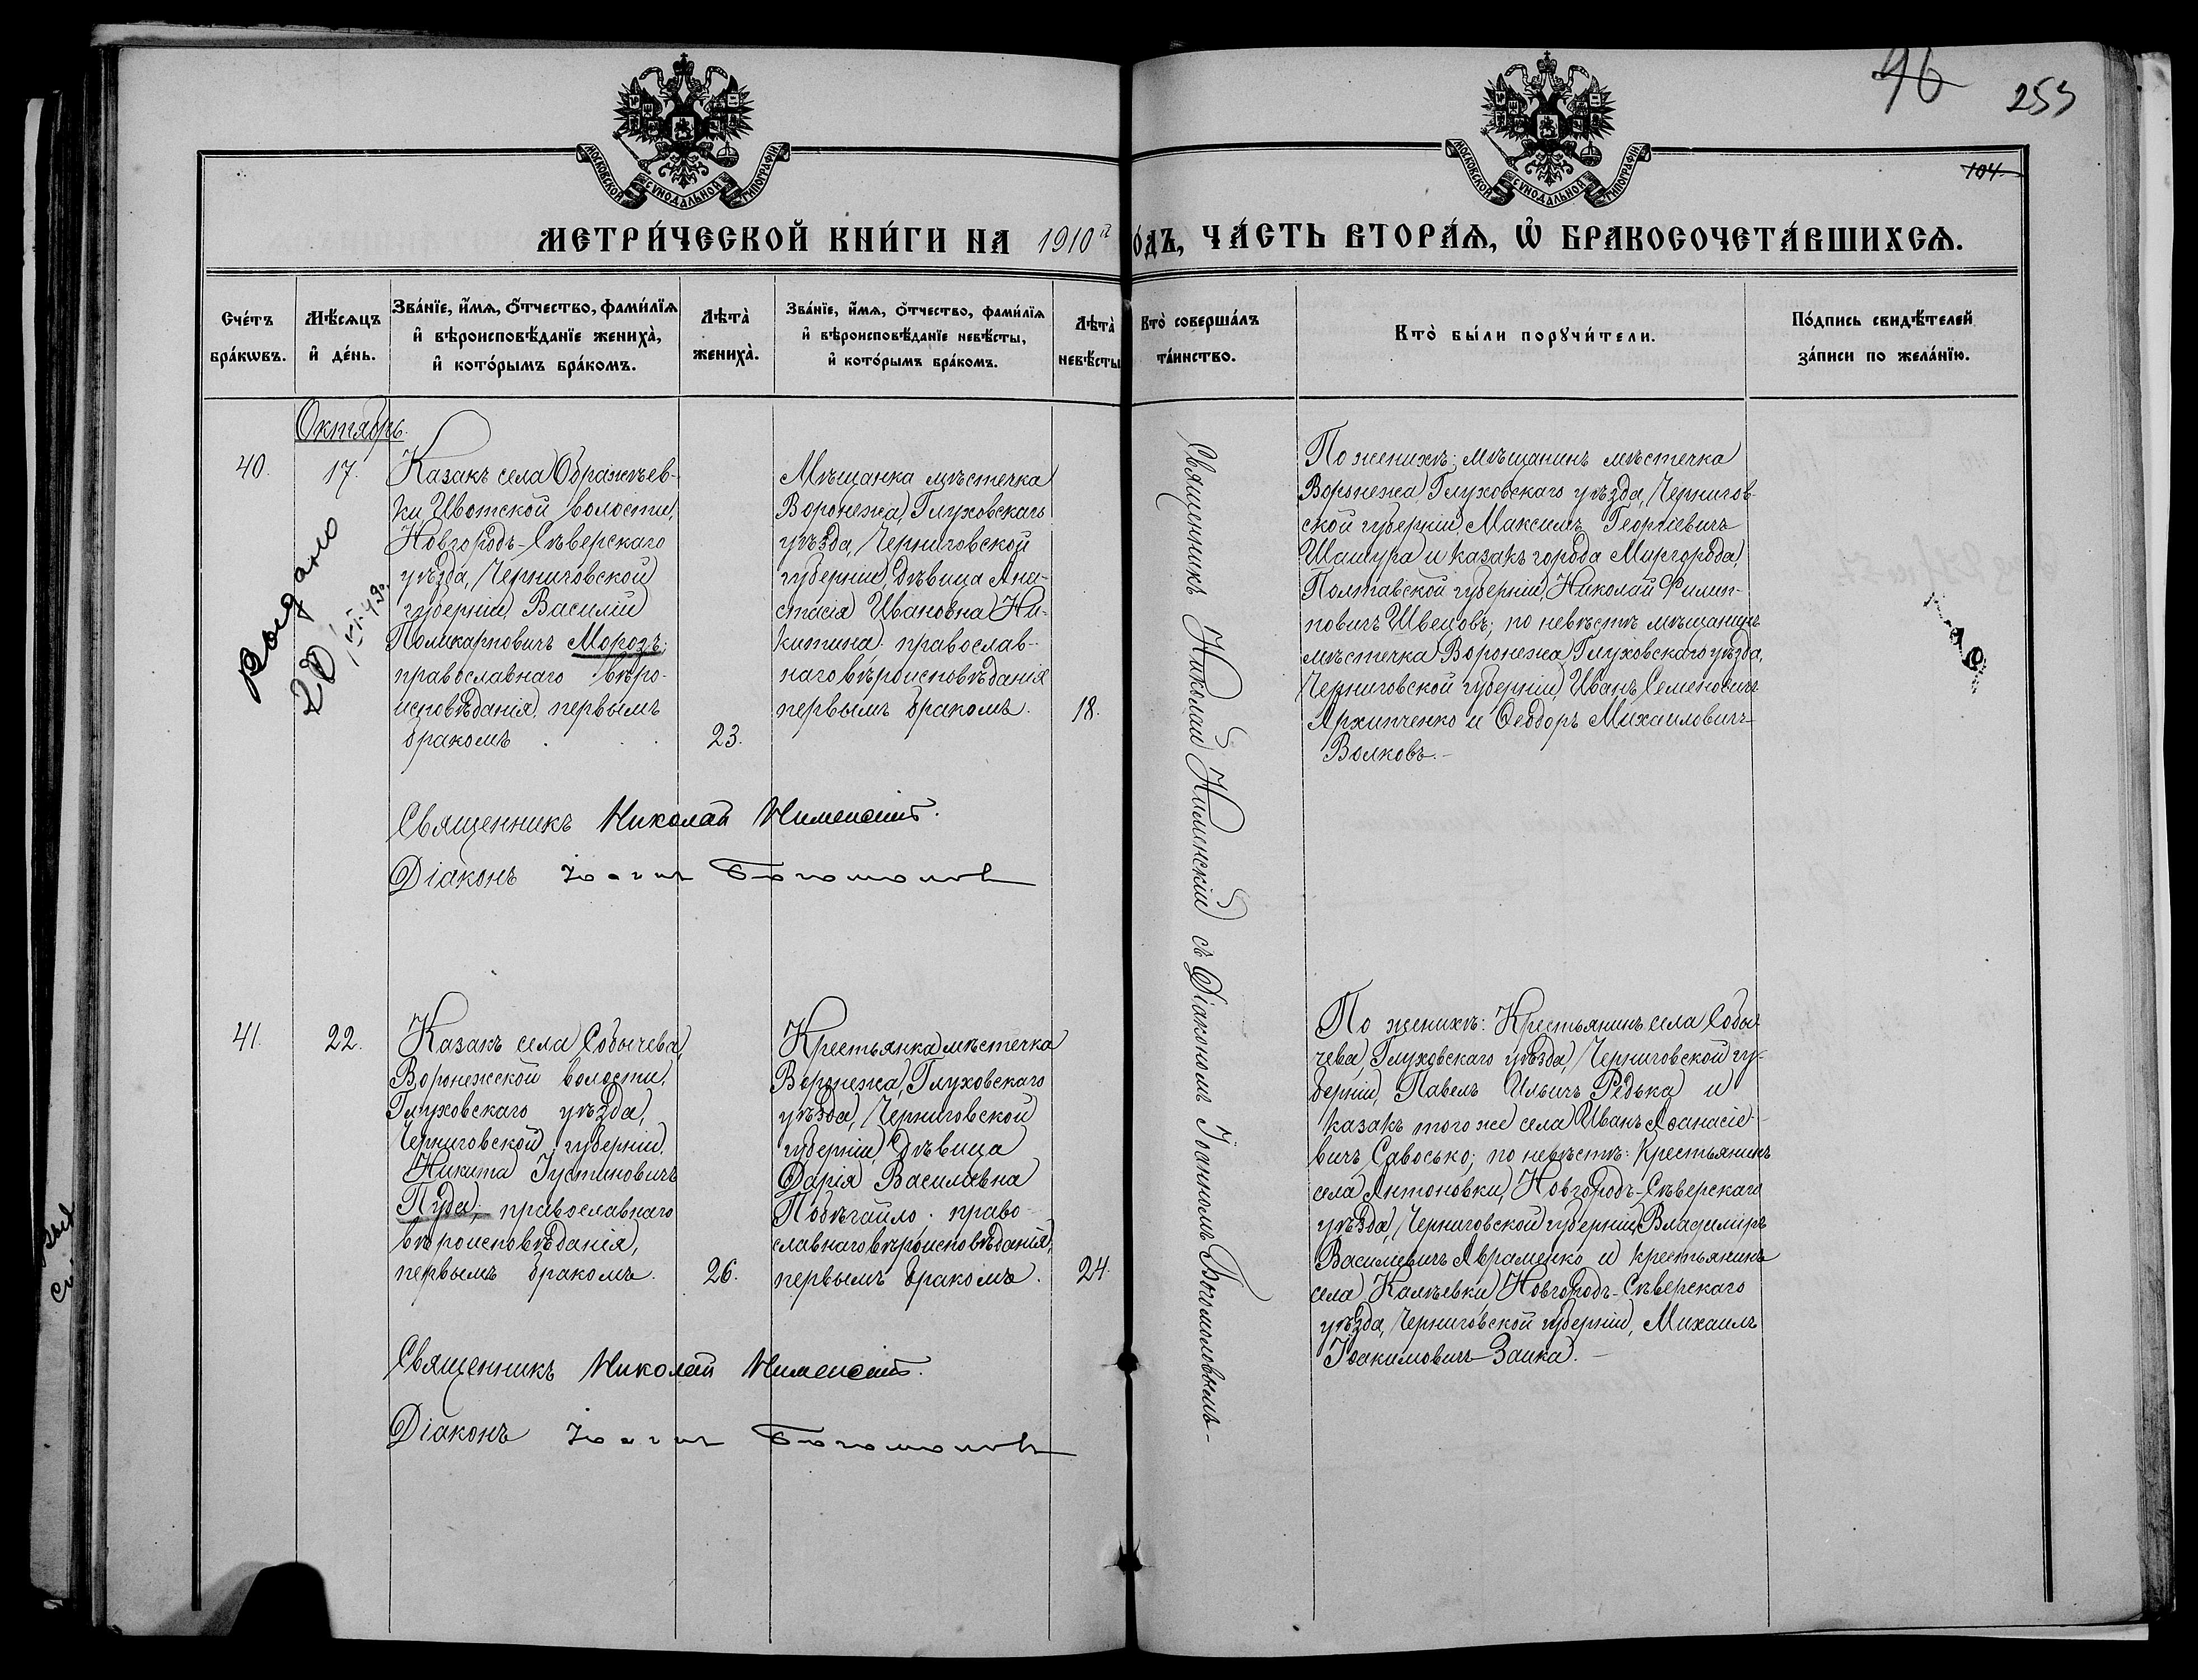 96
253
104.
МОСКОВСКОЙ СѴНОДАЛЬНОЙ ТИПОГРАФІИ
МОСКОВСКОЙ СѴНОДАЛЬНОЙ ТИПОГРАФІИ
МЕТРИ́ЧЕСКОЙ КНИ́ГИ НА 1910й го́дъ, ЧА́СТЬ ВТОРА́Ѧ, Ѡ҆ БРАКОСОЧЕТА́ВШИХСѦ.
Сче́тъ
бра́кѡвъ.
Мѣ́сѧцъ
и҆ де́нь.
Зва́нїе, и҆́мѧ, ѻ҆́тчество, фами́лїѧ
и҆ вѣроисповѣ́данїе жениха̀,
и҆ кото́рымъ бра́комъ.
Лѣта̀
жениха̀.
Зва́нїе, и҆́мѧ, ѻ҆́тчество, фами́лїѧ
и҆ вѣроисповѣ́данїе невѣ́сты,
и҆ кото́рымъ бра́комъ.
Лѣта̀
невѣ́сты
Кто̀ соверша́лъ
та́инство.
Кто̀ бы́ли порꙋчи́тели.
По́дпись свидѣ́телей
за́писи по жела́нїю.
Октябрь.
40.
17.
Выдано
20
Казакъ села Ображѣев-
ки Ивотской волости,
Новгородъ-Сѣверскаго
уѣзда, Черниговской
губерніи, Василій
Поликарповичъ Морозъ;
православнаго вѣро-
исповѣданія, первымъ
бракомъ
23.
Мѣщанка мѣстечка
Воронежа, Глуховскаго
уѣзда, Черниговской
губерніи, дѣвица Ана-
стасія Ивановна Ни-
китина, православ-
наго вѣроисповѣданія
первымъ бракомъ.
18.
Священникъ Николай Нименскій съ Діакономъ Іоанномъ Богомоловымъ-
По женихѣ: мѣщанинъ мѣстечка
Воронежа, Глуховскаго уѣзда, Чернигов-
ской губерніи, Максимъ Георгіевичъ
Шашура и казакъ города Миргорода,
Полтавской губерніи, Николай Филип-
повичъ Швецовъ; по невѣстѣ мѣщанинъ
мѣстечка Воронежа, Глуховскаго уѣзда,
Черниговской губерніи, Иванъ Семеновичъ
Архипченко и Ѳеодоръ Михаиловичъ
Волковъ.-
Священникъ Николай Нименскій.
Діаконъ Іоаннъ Богомоловъ
41.
22.
Казакъ села Собычева,
Воронежской волости,
Глуховскаго уѣзда,
Черниговской губерніи,
Никита Іустиновичъ
Пуда, православнаго
вѣроисповѣданія,
первымъ бракомъ.
26.
Крестьянка мѣстечка
Воронежа, Глуховскаго
уѣзда, Черниговской
губерніи, дѣвица
Дарія Василіевна
Побѣгайло, право-
славнаго вѣроисповѣданія,
первымъ бракомъ.
24.
По женихѣ: Крестьянинъ села Собы-
чева, Глуховскаго уѣзда, Черниговской гу-
берніи, Павелъ Ильичъ Редька и
казакъ того же села Иванъ Аѳанасіе-
вичъ Савосько; по невѣстѣ: Крестьянинъ
села Антоновки, Новгородъ-Сѣверскаго
уѣзда, Черниговской губерніи, Владиміръ
Василіевичъ Авраменко и крестьянинъ
села Калѣевки, Новгородъ-Сѣверскаго
уѣзда, Черниговской губерніи, Михаилъ
Іоакимовичъ Заика.-
Священникъ Николай Нименскій.
Діаконъ Іоаннъ Богомоловъ